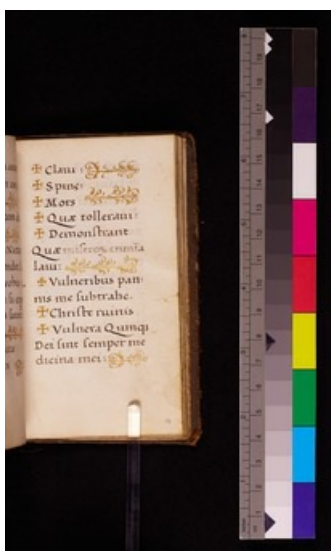 ✠ Claui :
✠ Spine:
✠ Mors
✠ Quæ tolleraui:
✠ Demonstrant
Quæ miseros crimina
laui:
✠ Vulneribus pan
nis me subtrahe.
✠ Christe ruinis
✠ Vulnera Quinqȝ
Dei sint semper me
dicina mei :